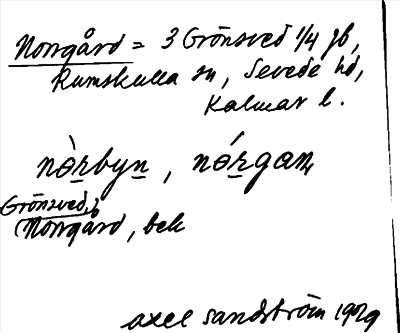 Norrgård = 3 Grönsved 1/4 jb,
Rumskulla sn, Sevede hd,
Kalmar l.
nòrbyn, nórgan
Grönsved,
Norrgård, bek
axel sandström 1929